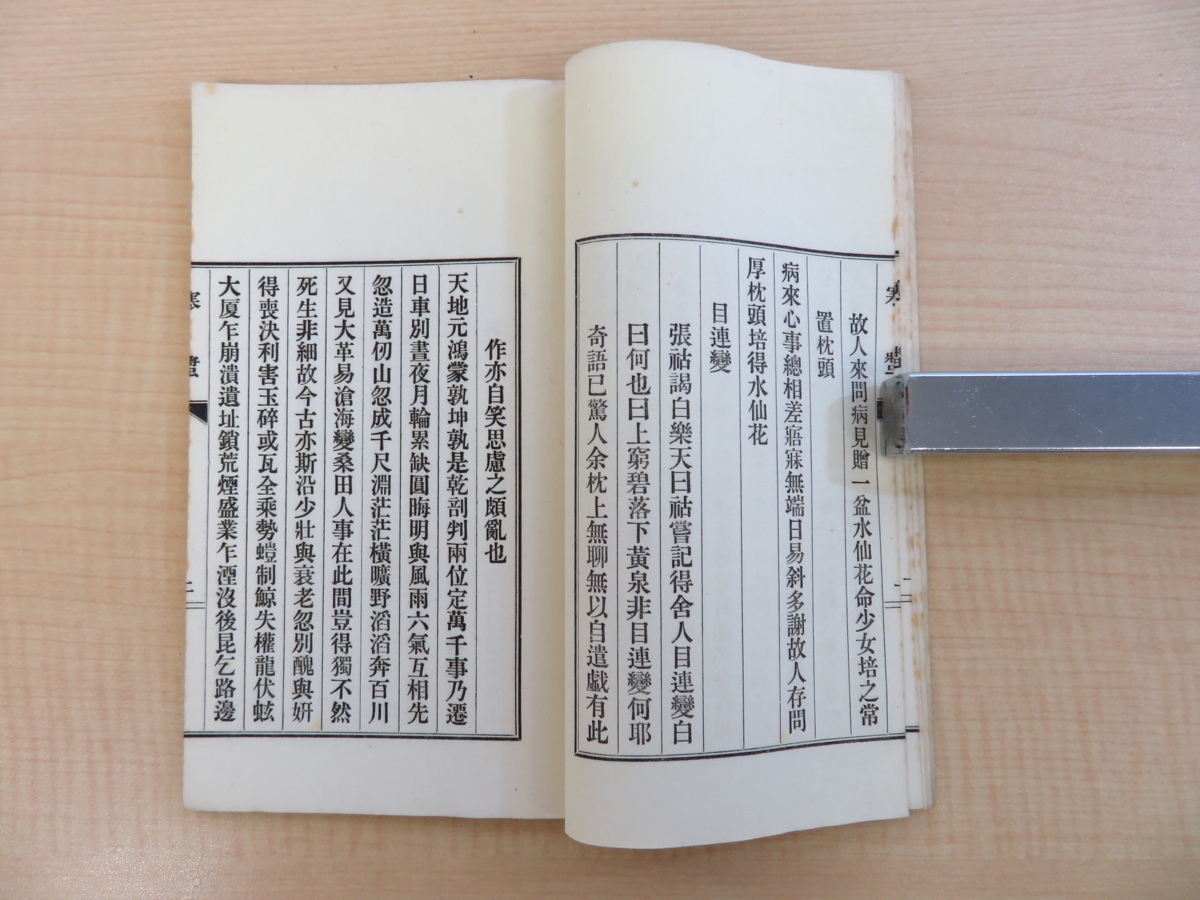 故人來問病見贈一盆水仙花命少女培之常
置枕頭
病來心事總相差寤寐無端日易斜多謝故人存問
厚枕頭培得水仙花
目連變
張祜謁白樂天曰祜嘗記得舍人目連變白
曰何也曰上窮碧落下黃泉非目連變何耶
奇語已驚人余枕上無聊無以自遣戲有此
作亦自笑思慮之頗亂也
天地元鴻蒙孰坤孰是乾剖判兩位定萬千事乃遷
日車別晝夜月輪累缺圓晦明與風雨六氣互相先
忽造萬仞山忽成千尺淵茫茫橫曠野滔滔奔百川
又見大革易滄海變桑田人事在此間豈得獨不然
死生非細故今古亦斯沿少壯與衰老忽別醜與妍
得喪決利害玉碎或瓦全乘勢螘制鯨失權龍伏蚿
大厦乍崩潰遺址鎖荒煙盛業乍湮沒後昆乞路邊
寒